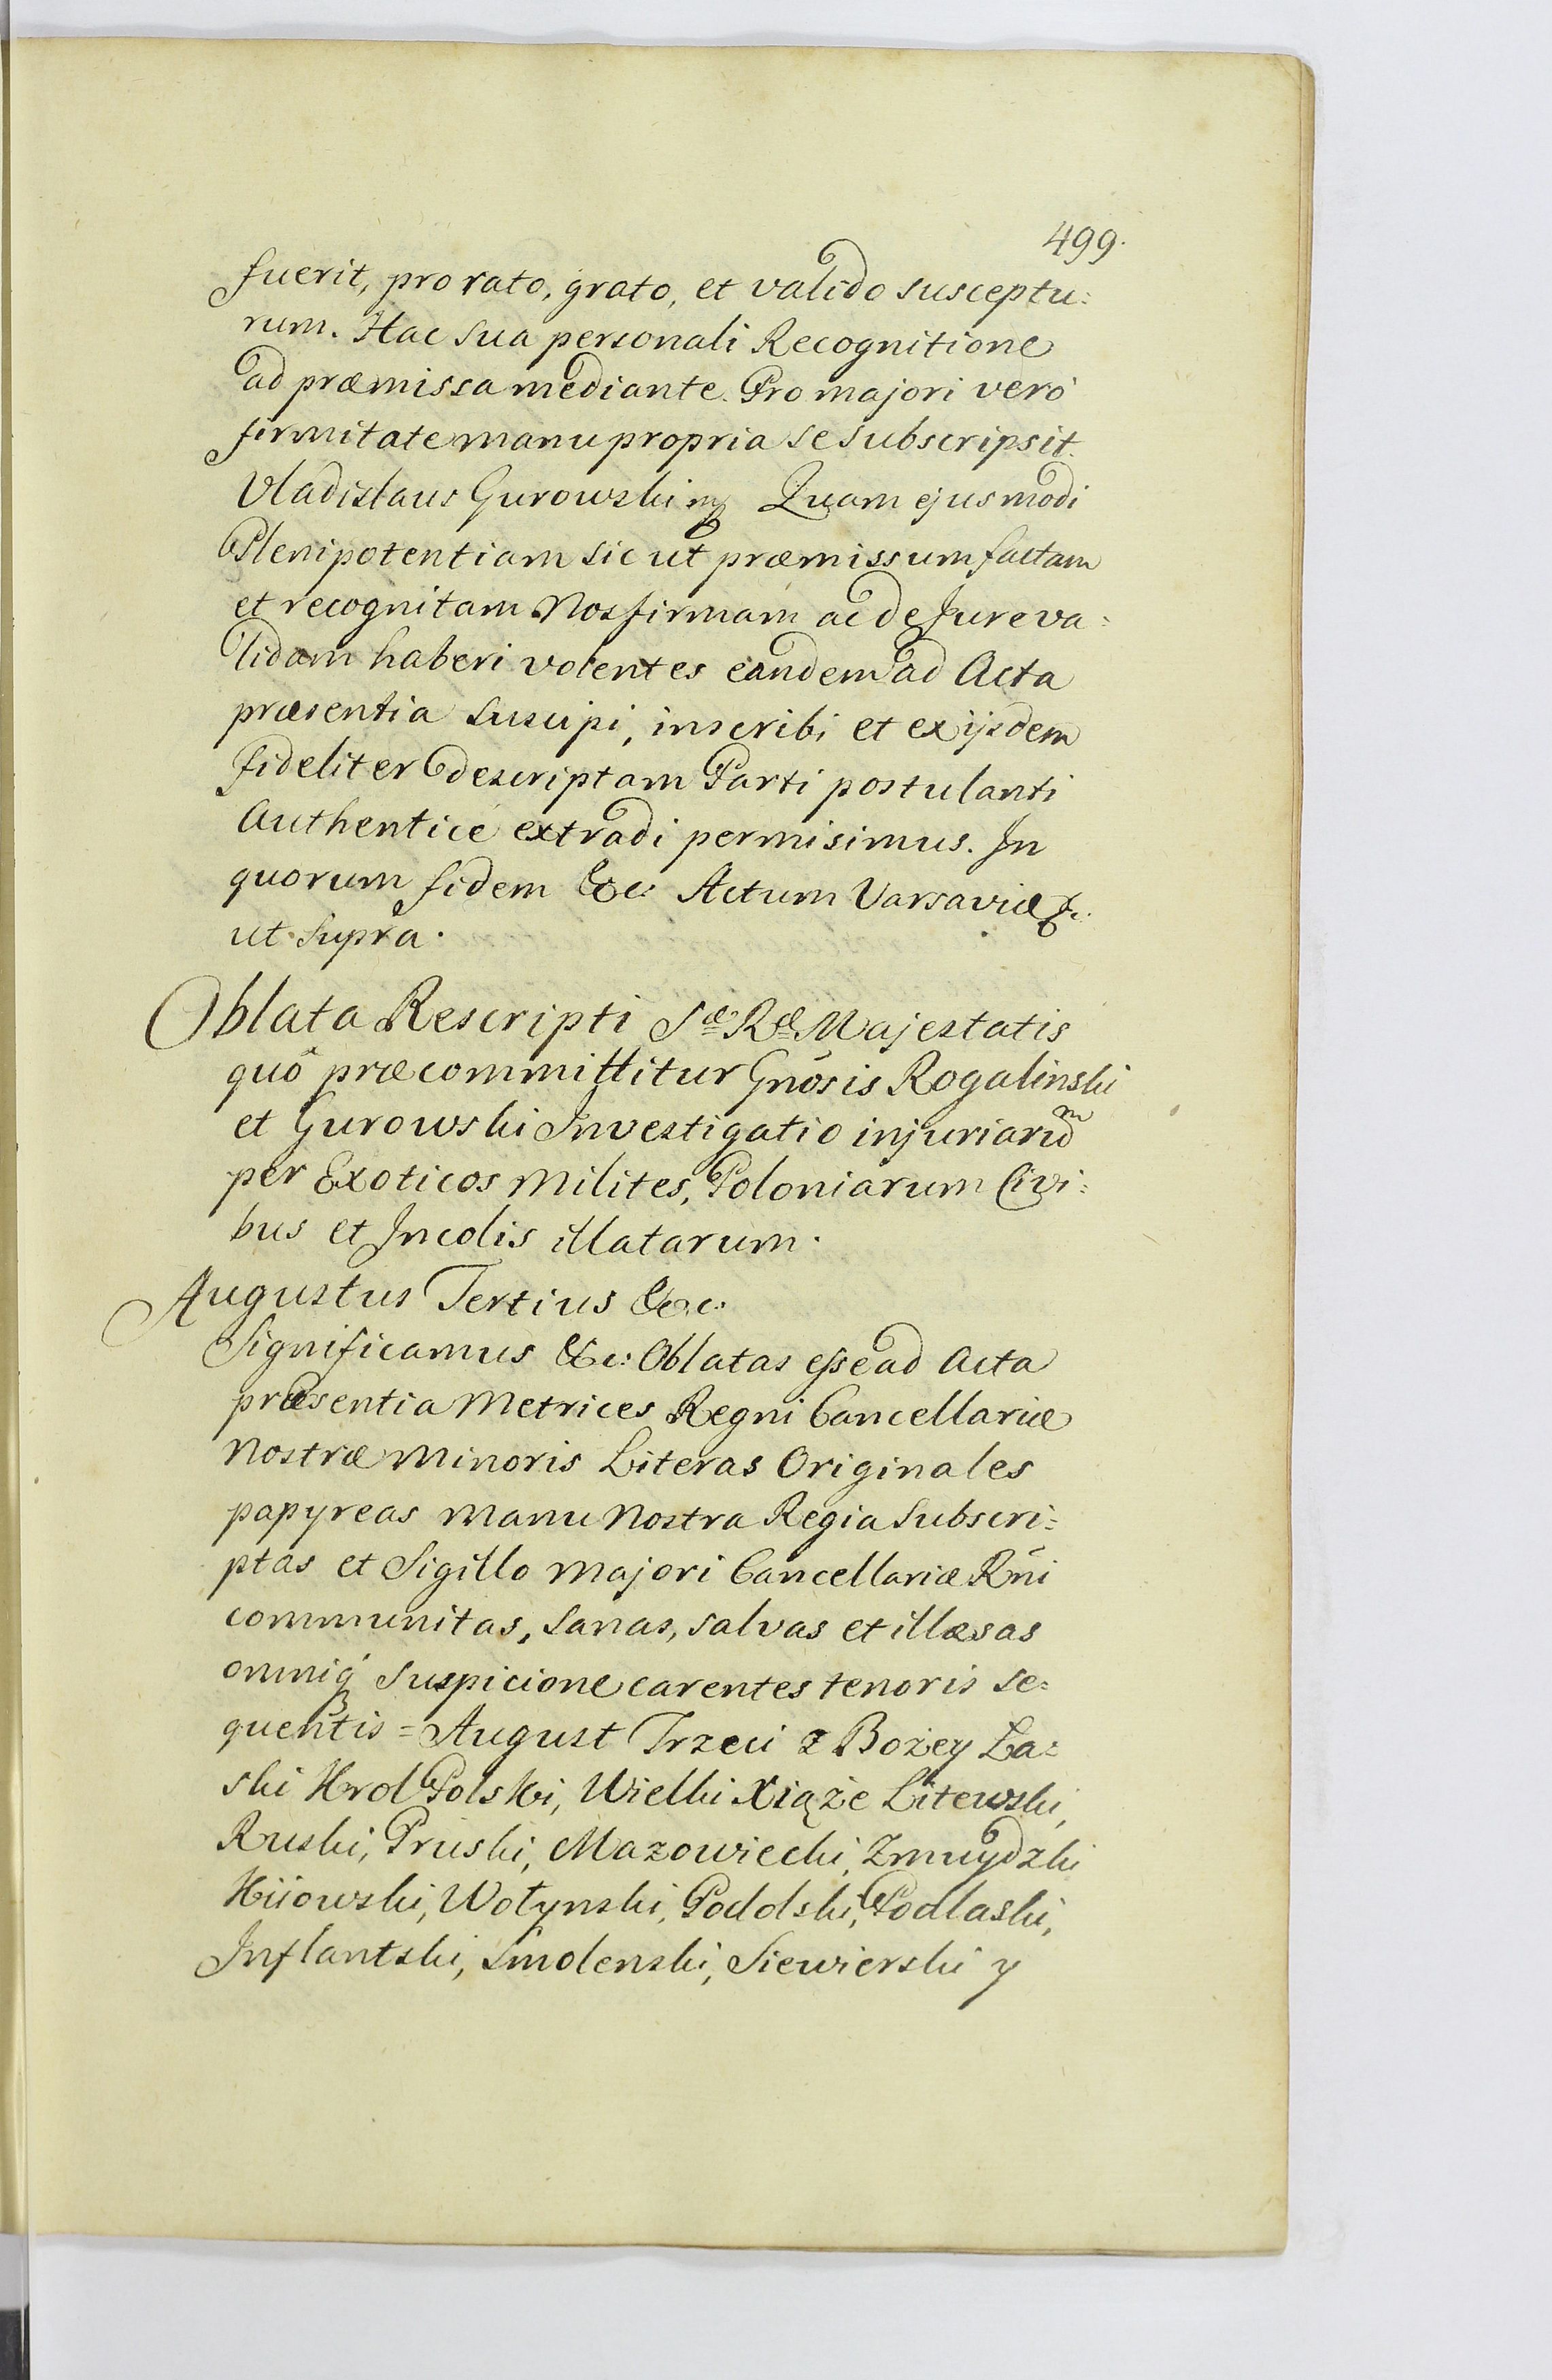 499.
fuerit, pro rato, grato, et valido susceptu:
rum. Hac sua personali Recognitione
ad præmissa mediante. Pro majori verò
firmitate manu propria se subscripsit.
Vladislaus Gurowski mp Quam ejusmodi
Plenipotentiam sic ut præmissum factam
et recognitam Nos firmam ac de Jure va:
lidam haberi volentes eandem ad Acta
præsentia suscipi, inscribi et ex ijsdem
fideliter descriptam Parti postulanti
Authenticè extradi permisimus. In
quorum fidem &c: Actum Varsaviæ &c.
ut supra.
Oblata Rescripti Sæ Ræ Majestatis
quô præcommittitur Gnosis Rogalinski
et Gurowski Investigatio injuriarum
per Exoticos Milites, Poloniarum Civi:
bus et Incolis illatarum.
Augustus Tertius &c:
Significamus &c: Oblatas esse ad Acta
præsentia Metrices Regni Cancellariæ
Nostræ Minoris Literas Originales
papyreas Manu Nostra Regia Subscri:
ptas et Sigillo Majori Cancellariæ Rni
communitas, sanas, salvas et illæsas
omniq́ suspicione carentes tenoris se:
quentis = August Trzeci z Bożey Ła:
ski Krol Polski, Wielki Xiąże Litewski,
Ruski, Pruski, Mazowiecki, Zmuydzki
Kiiowski, Wołynski, Podolski, Podlaski,
Inflantski, Smolenski, Siewierski y